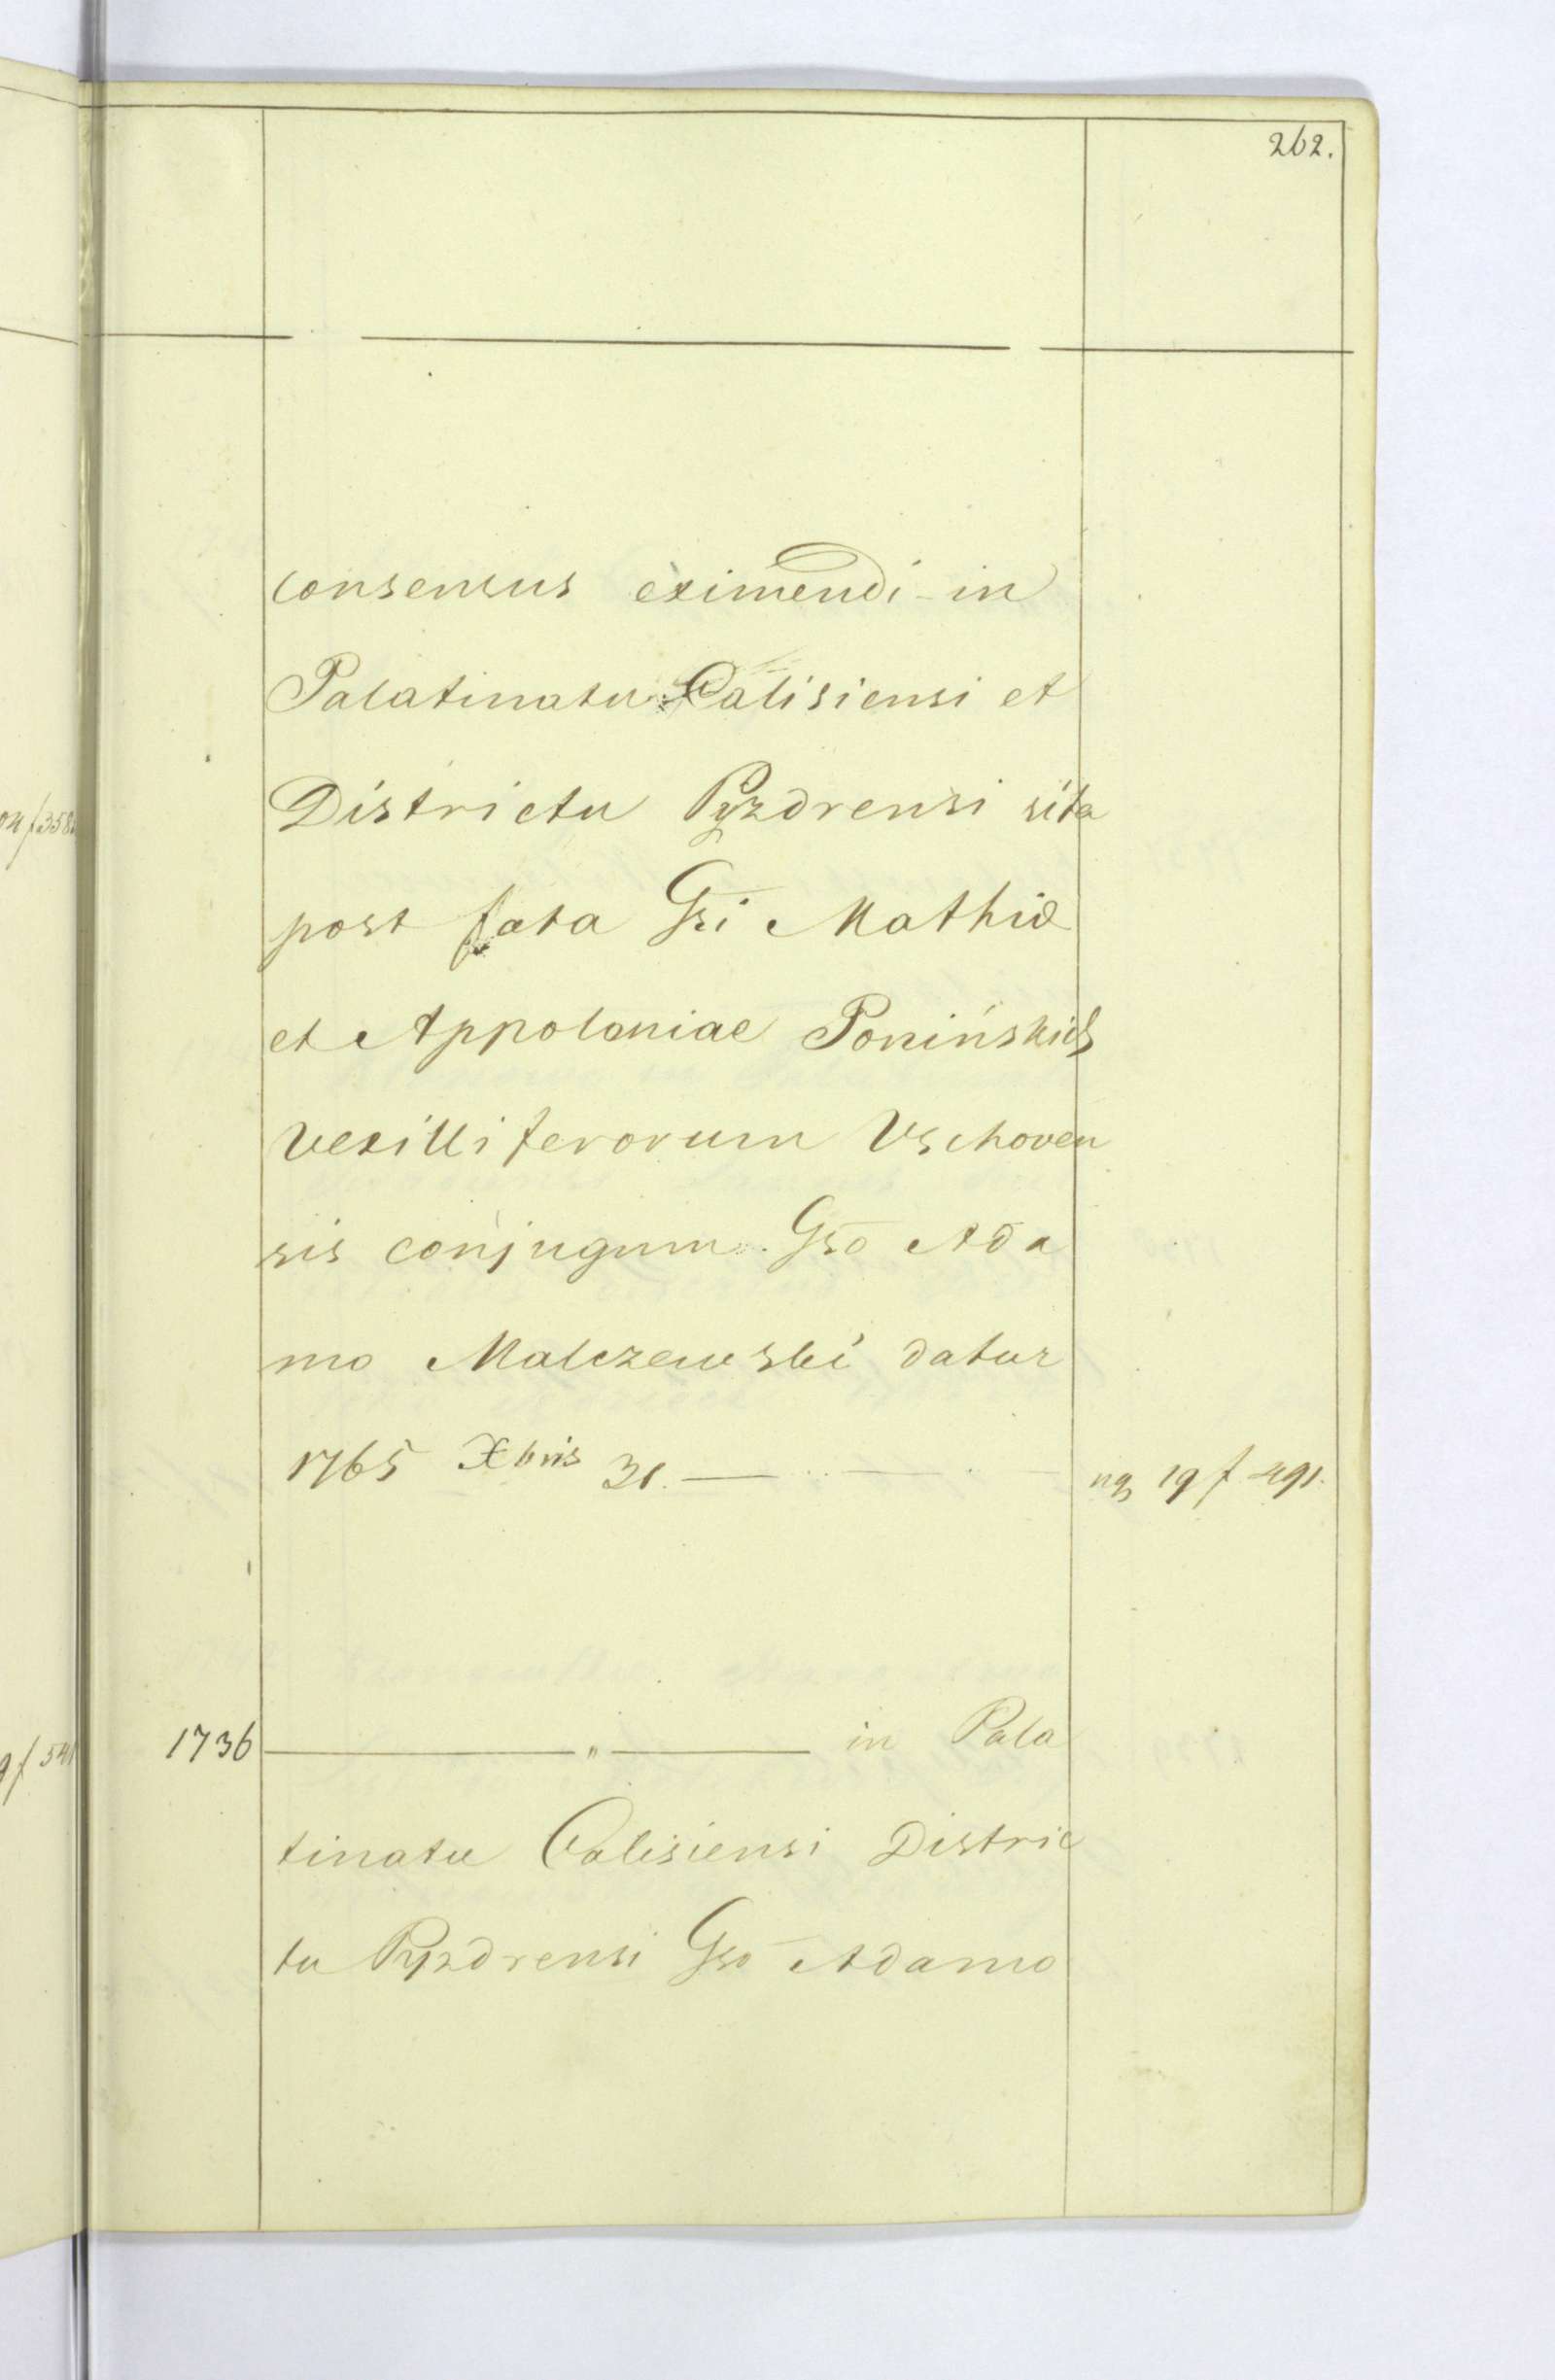 262.
consensus eximendi in
Palatinatu Calisiensi et
Districtu Pyzdrensi sita
post fata Gsi Mathiæ
et Appoloniae Ponińskich
Vexilliferorum Vschoven
sis conjugum Gso Ada
mo Malczewski datur
1765 Xbris 31. 19 f 491.
1736 " in Pala
tinatu Calisiensi Distric
tu Pyzdrensi Gso Adamo